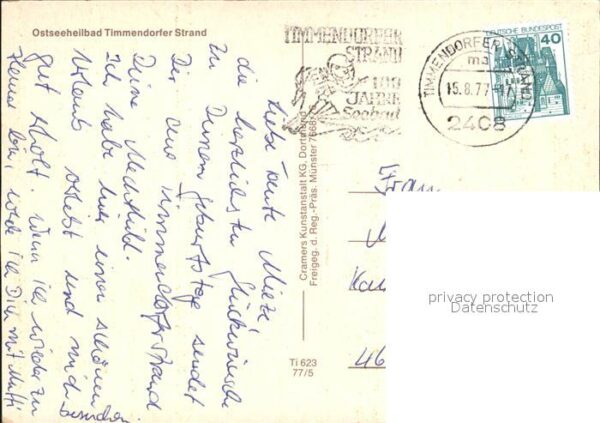 Ostseeheilbad Timmendorfer Strand
TIMMENDORFER
STRAND
100
JAHRE
Seebad
TIMMENDORFER STRAND
ma
15.8.77-17
2408
DEUTSCHE BUNDESPOST
40
Liebe Tante Miezi!
die herzlichsten Glückwünsche
zu Deinem Geburtstage sendet
Dir aus Timmendorferstrand
Deine Mechthild.
Ich habe hier einen schönen
Urlaub erlebt und mich
gut erholt. Wenn ich wieder zu
Hause bin, werde ich Dich mit Mutti
besuchen.
Cramers Kunstanstalt KG, Dortmund
Freigeg. d. Reg.-Präs. Münster 7668
Ti 623
77/5
Frau
46
privacy protection
Datenschutz